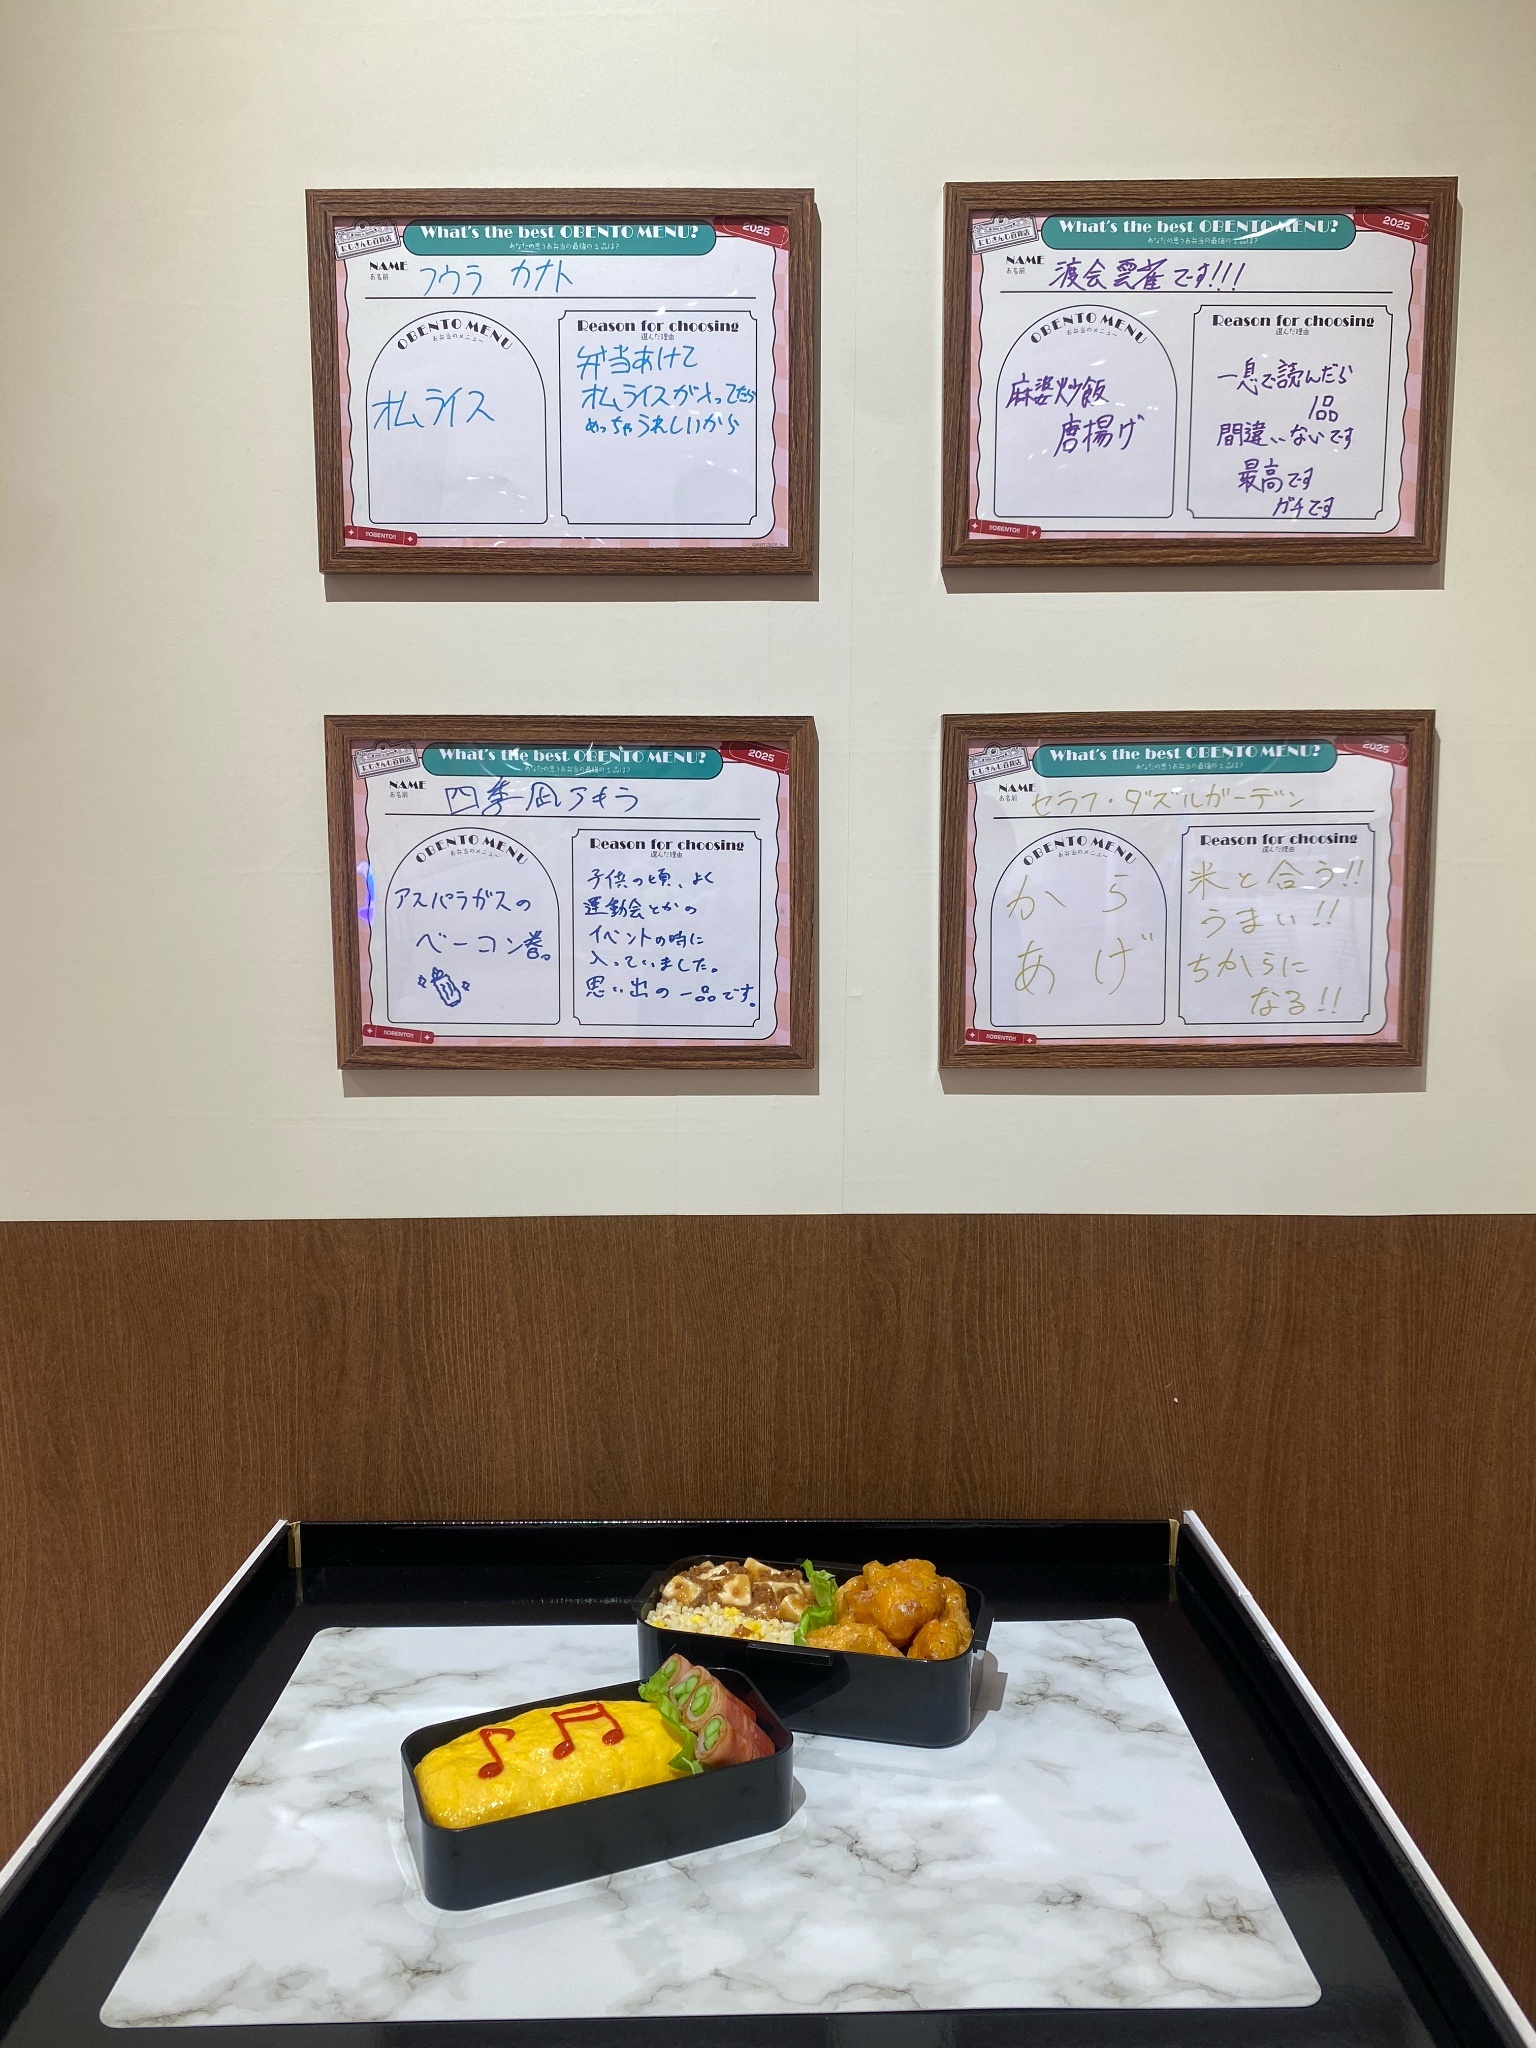 にじさんじ百貨店
What's the best OBENTO MENU?
あなたの思うお弁当の最強の1品は?
2025
NAME
お名前
フウラ カナト
OBENTO MENU
お弁当のメニュー
オムライス
Reason for choosing
選んだ理由
弁当あけて
オムライスが入ってたら
めっちゃうれしいから
!!OBENTO!!
にじさんじ百貨店
What's the best OBENTO MENU?
あなたの思うお弁当の最強の1品は?
2025
NAME
お名前
渡会雲雀です!!!
OBENTO MENU
お弁当のメニュー
麻婆炒飯
唐揚げ
Reason for choosing
選んだ理由
一息で読んだら
1品
間違いないです
最高です
ガチです
!!OBENTO!!
にじさんじ百貨店
What's the best OBENTO MENU?
あなたの思うお弁当の最強の1品は?
2025
NAME
お名前
四季凪アキラ
OBENTO MENU
お弁当のメニュー
アスパラガスの
ベーコン巻。
Reason for choosing
選んだ理由
子供の頃、よく
運動会とかの
イベントの時に
入っていました。
思い出の一品です。
!!OBENTO!!
にじさんじ百貨店
What's the best OBENTO MENU?
あなたの思うお弁当の最強の1品は?
2025
NAME
お名前
セラフ・ダズルガーデン
OBENTO MENU
お弁当のメニュー
から
あげ
Reason for choosing
選んだ理由
米と合う!!
うまい!!
ちからに
なる!!
!!OBENTO!!